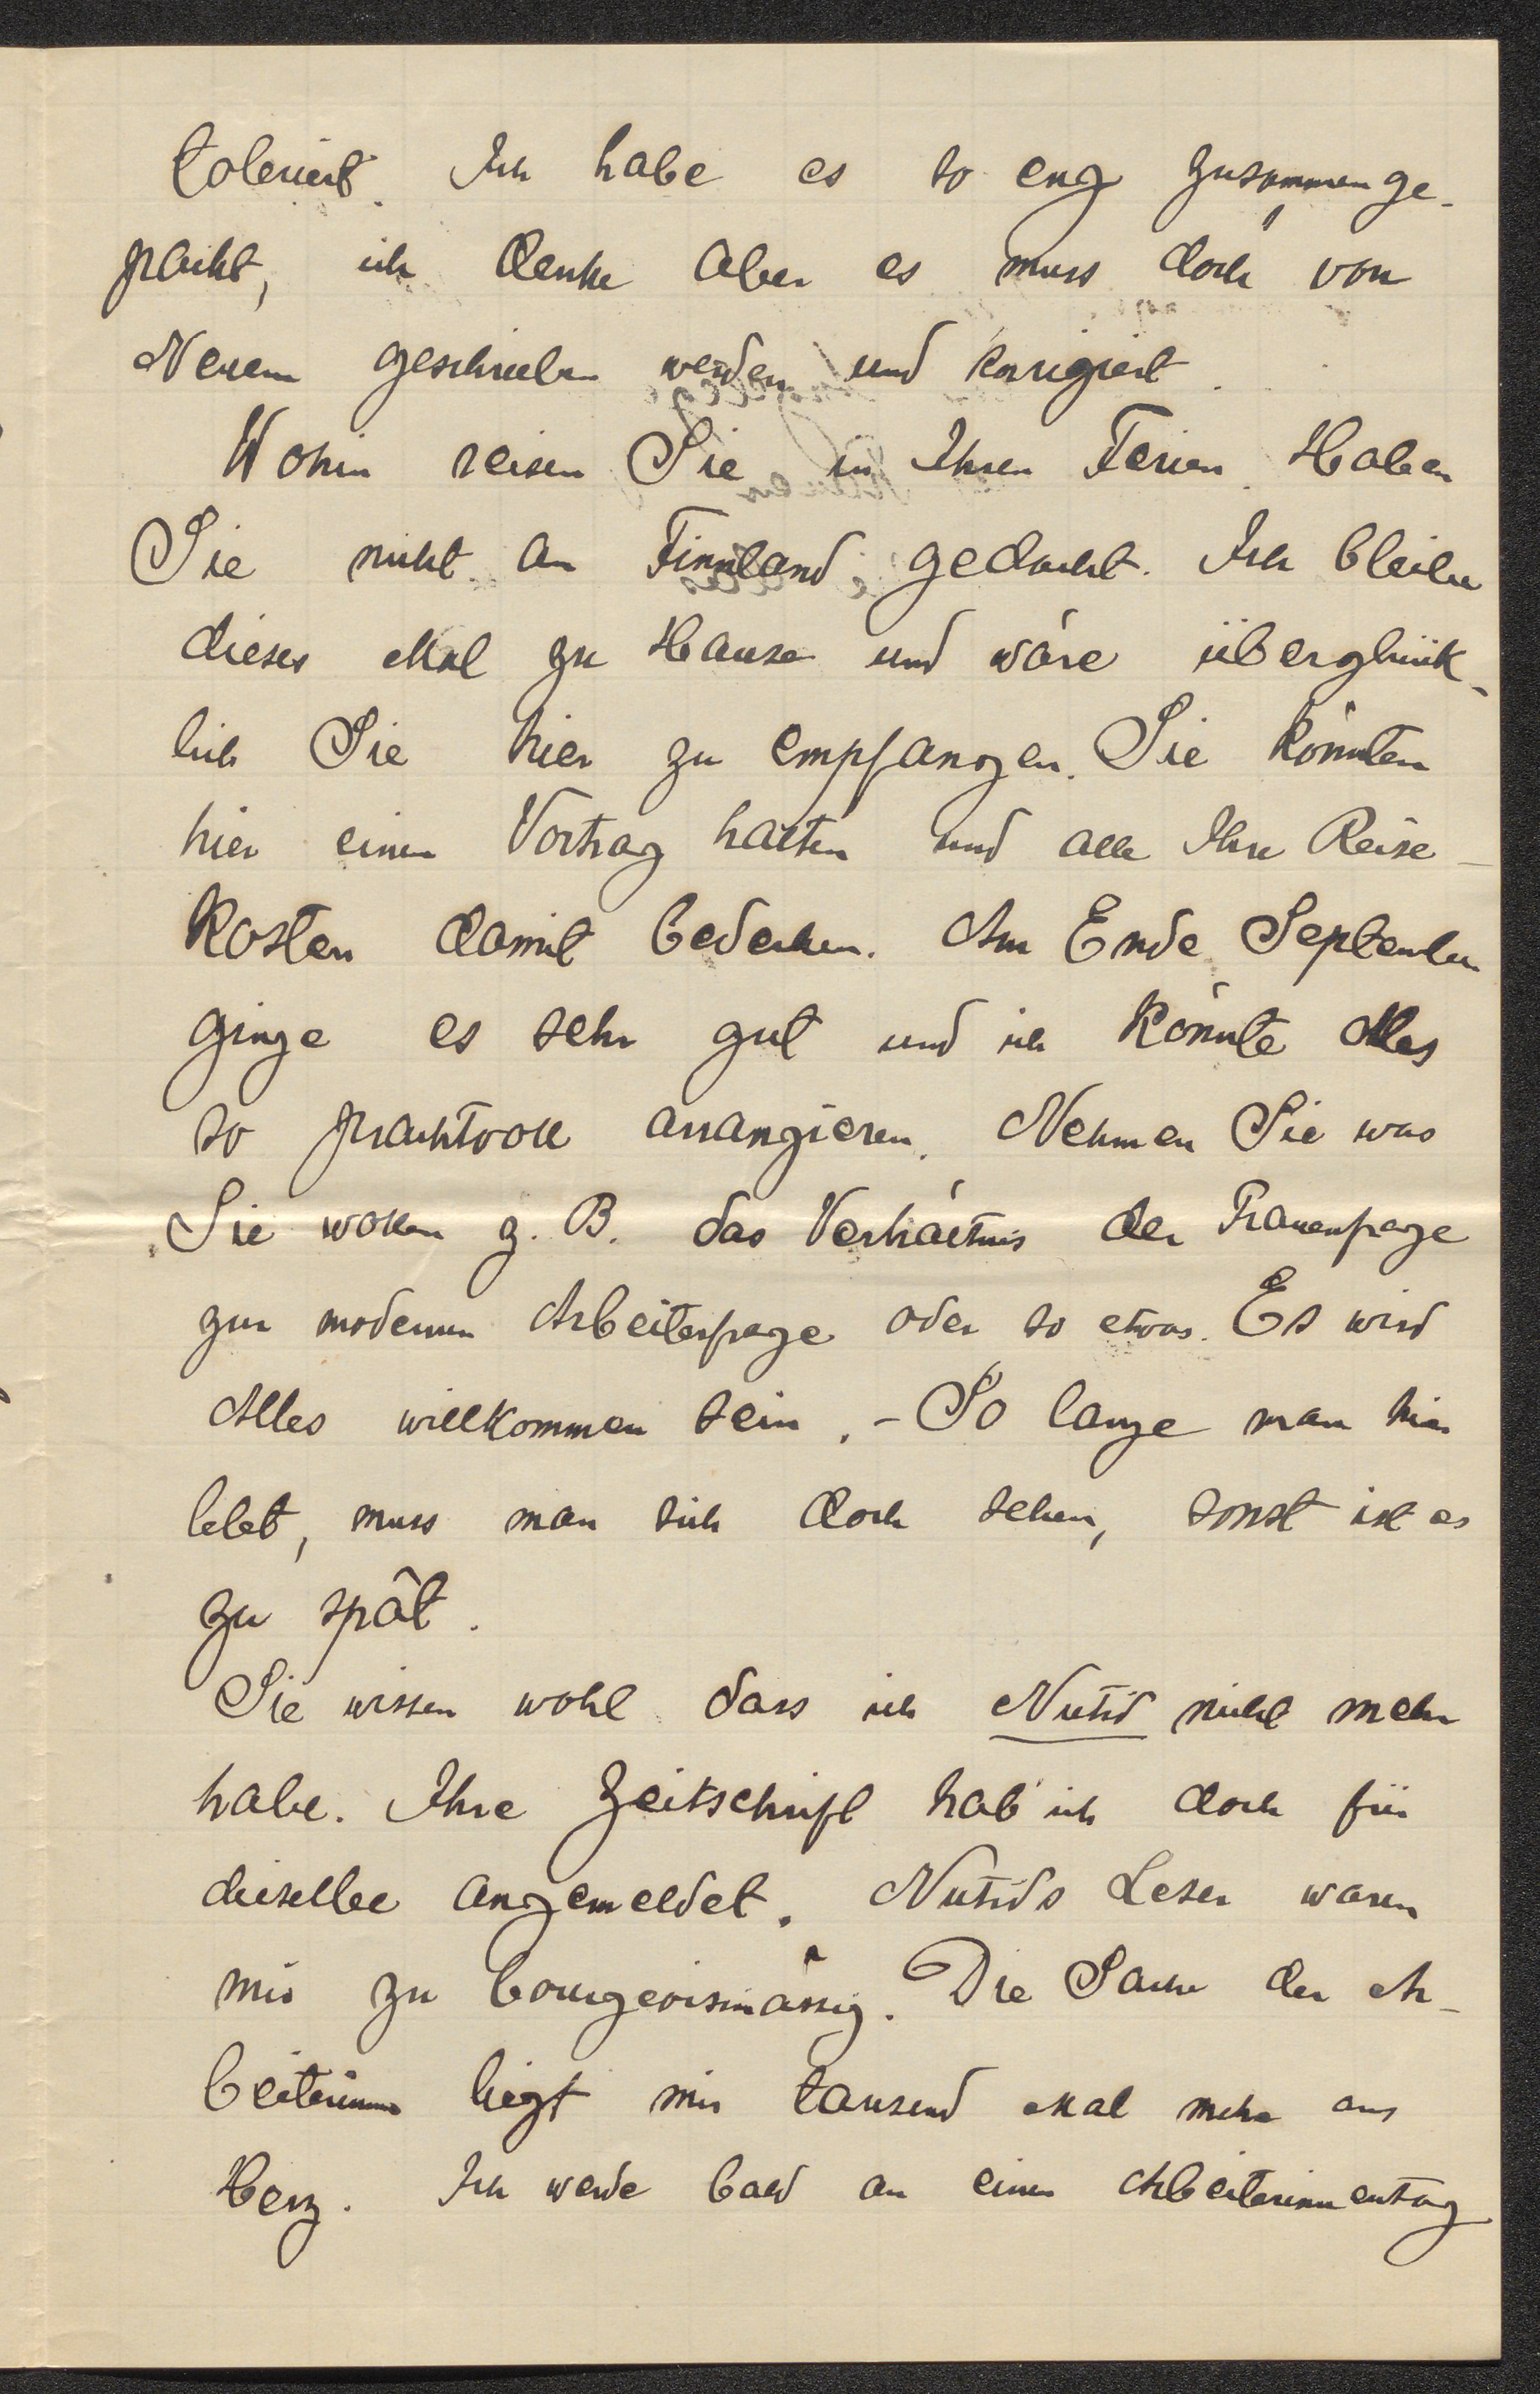 toleriert. Ich habe es so eng zusammenge-
packt, ich denke aber es muss doch von
Neuem geschrieben werden und korrigiert.
Wohin reisen Sie in Ihren Ferien. Haben
Sie nicht an Finnland gedacht. Ich bleibe
dieses Mal zu Hause und wäre überglück-
lich Sie hier zu empfangen. Sie könnten
hier einen Vortrag halten und alle Ihre Reise-
kosten damit bedecken. Am Ende September
ginge es sehr gut und ich könnte Alles
so prachtvoll arrangieren. Nehmen Sie was
Sie wollen z. B. das Verhältnis der Frauenfrage
zur modernen Arbeiterfrage oder so etwas. Es wird
Alles willkommen sein. - So lange man hier
lebt, muss man sich doch sehen, sonst ist es
zu spät.
Sie wissen wohl dass ich Nutid nicht mehr
habe. Ihre Zeitschrift hab' ich doch für
dieselbe angemeldet. Nutids Leser waren
mir zu bourgeoismässig. Die Sache der Ar-
beiterinnen liegt mir tausend Mal mehr ans
Herz. Ich werde bald an einen Arbeiterinnentag